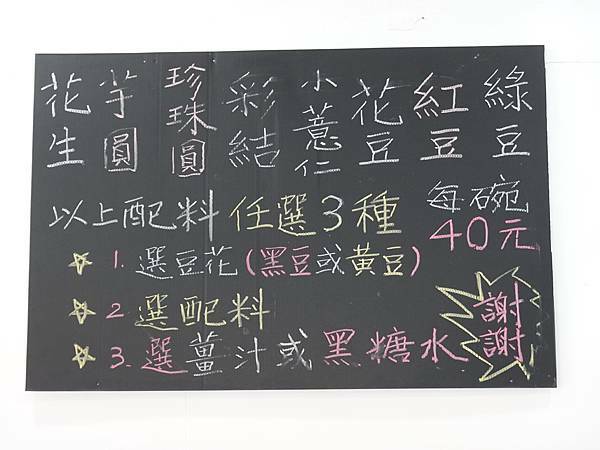 綠豆
紅豆
花豆
小薏仁
彩結
珍珠圓
芋圓
花生
以上配料 任選3種
每碗
40元
1. 選豆花(黑豆或黃豆)
2. 選配料
3. 選薑汁或黑糖水
謝謝